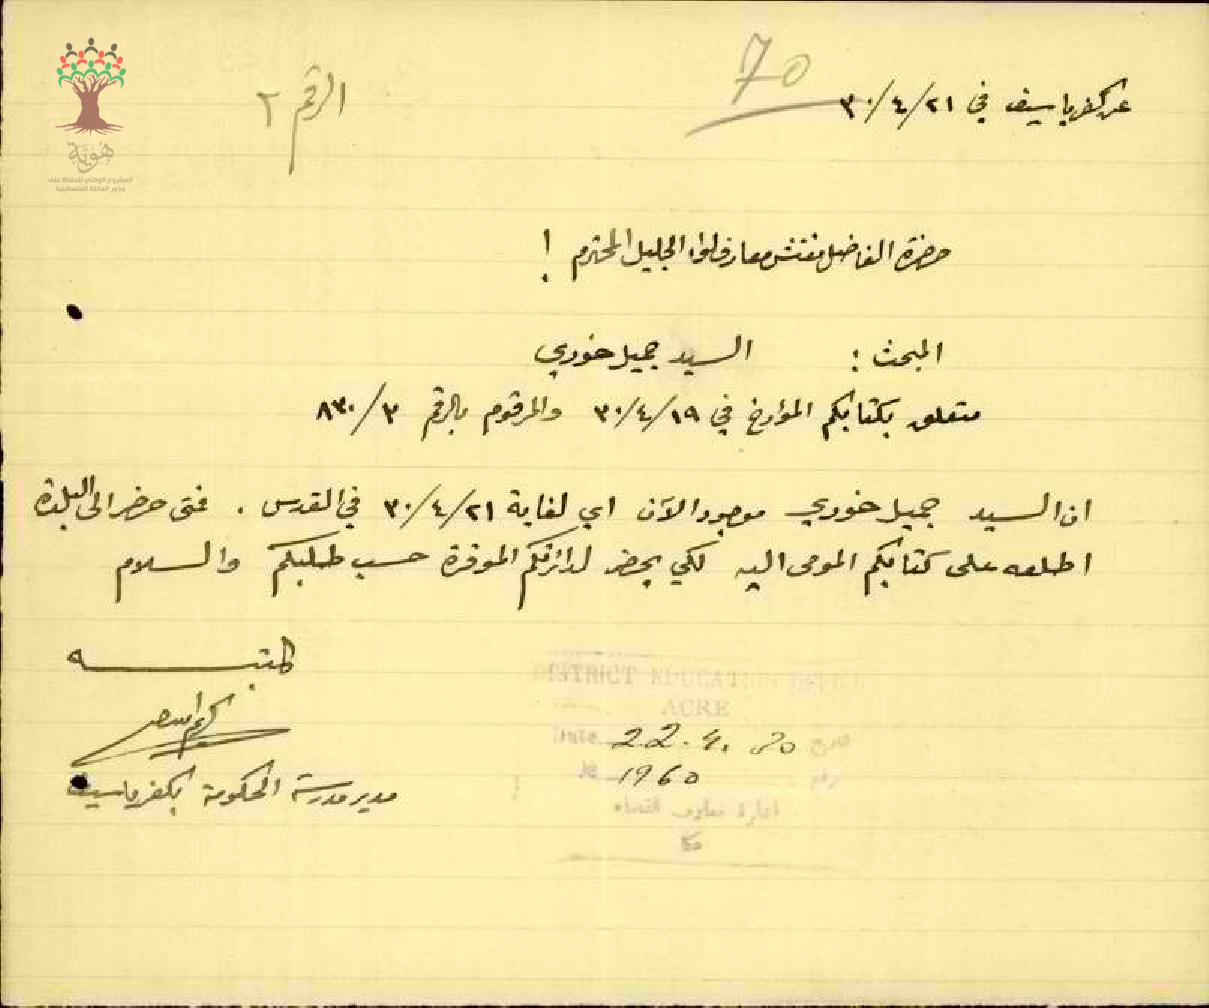 70
عن كفرياسيف في ٢١/٤/٣٠
الرقم ٢
هُوِيَّة
المشروع الوطني للحفاظ على
جذور العائلة الفلسطينية
حضرة الفاضل مفتش معارف لواء الجليل المحترم !
المبحث : السيد جميل خوري
متعلق بكتابكم المؤرخ في ١٩/٤/٣٠ والمرقوم بالرقم ٣/٨٣٠
ان السيد جميل خوري موجود الآن اي لغاية ٢١/٤/٣٠ في القدس . فمتى حضر الى البلدة
اطلعه على كتابكم المومى اليه لكي يحضر لدائرتكم الموقرة حسب طلبكم والسلام
كتبه
مدير مدرسة الحكومة بكفرياسيف
DISTRICT EDUCATION OFFICE
ACRE
Date 22.4.30 تاريخ
No 1960 رقم
ادارة معارف قضاء
عكا